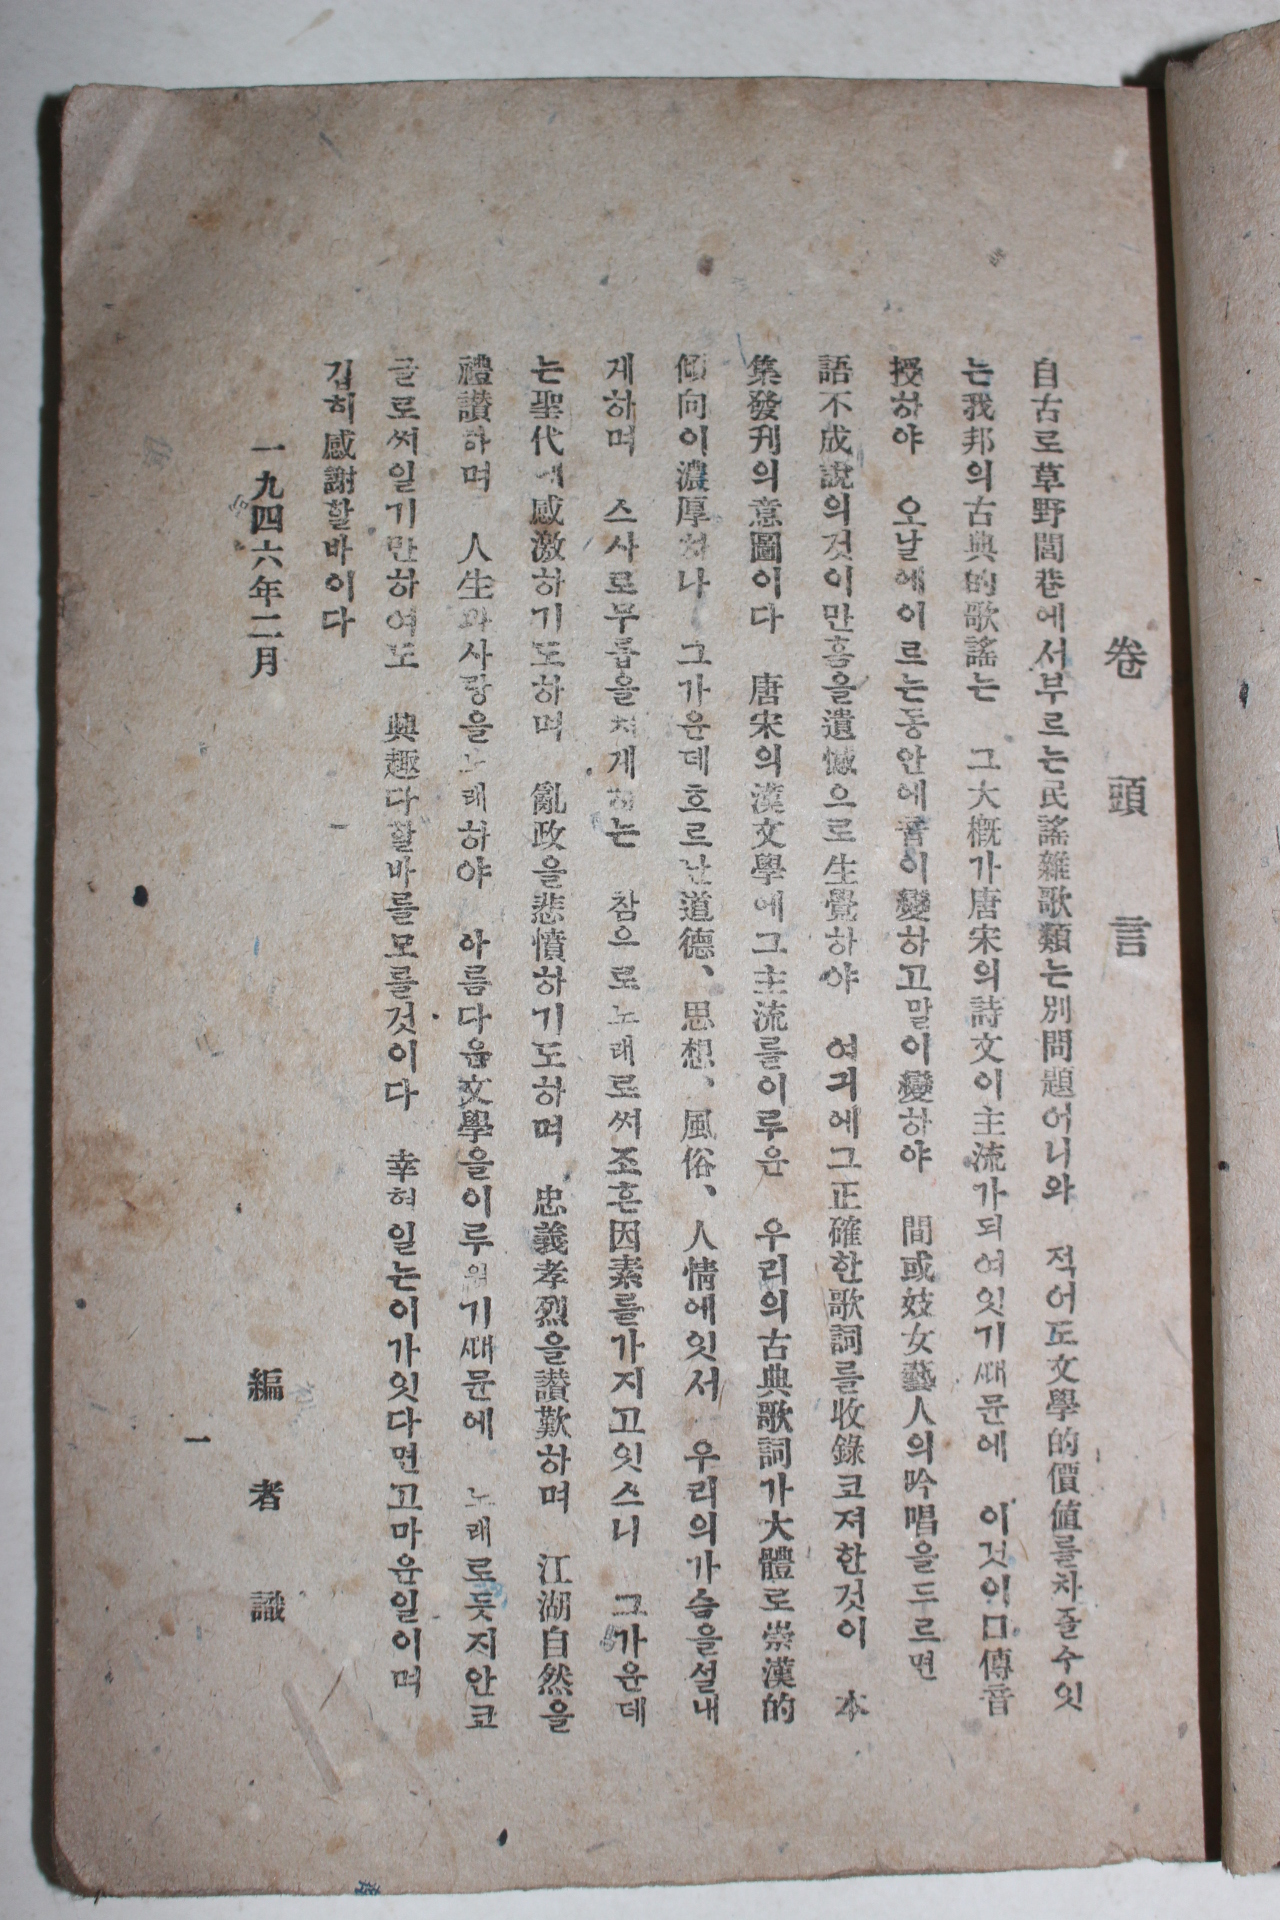 卷頭言
自古로草野閭巷에서부르는民謠雜歌類는別問題어니와 적어도文學的價値를차즐수잇
는我邦의古典的歌謠는 그大槪가唐宋의詩文이主流가되여잇기ㅼㅐ문에 이것이口傳音
授하야 오날에이르는동안에音이變하고말이變하야 間或妓女藝人의吟唱을드르면
語不成說의것이만흠을遺憾으로生覺하야 여긔에그正確한歌詞를收錄코저한것이 本
集發刊의意圖이다 唐宋의漢文學에그主流를이루운 우리의古典歌詞가大體로崇漢的
傾向이濃厚하나 그가운데흐르난道德、思想、風俗、人情에잇서 우리의가슴을설내
게하며 스사로무릅을치게하는 참으로노래로써조흔因素를가지고잇스니 그가운데
는聖代에感激하기도하며 亂政을悲憤하기도하며 忠義孝烈을讚歎하며 江湖自然을
禮讚하며 人生과사랑을노래하야 아름다운文學을이루웟기ㅼㅐ문에 노래로듯지안코
글로써일기만하여도 興趣다할바를모를것이다 幸혀일는이가잇다면고마운일이며
깁히感謝할바이다
一九四六年二月
編者識
一